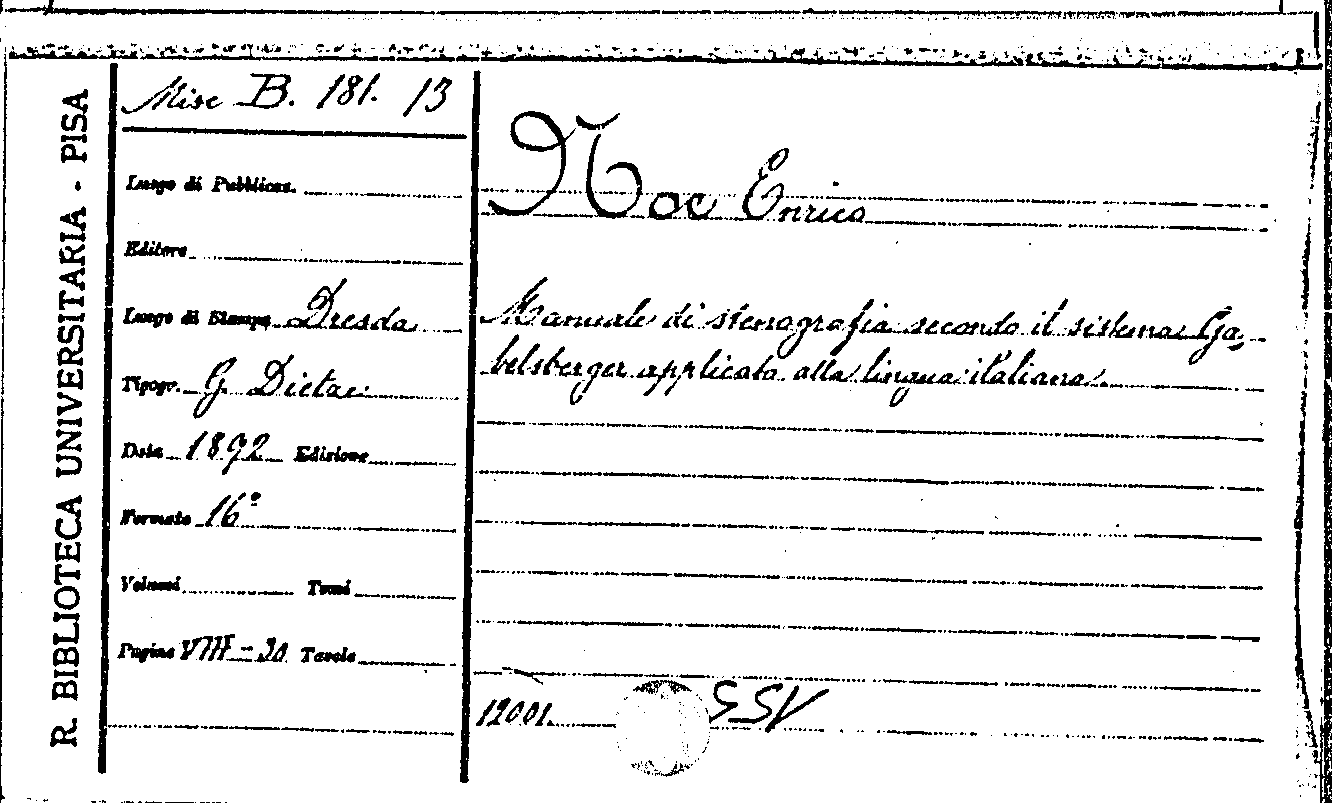 R. BIBLIOTECA UNIVERSITARIA - PISA
Misc B. 181. 13
Luogo di Pubblicaz.
Editore
Luogo di Stampa Dresda
Tipogr. G. Dietze
Data 1892 Edizione
Formato 16°
Volumi Tomi
Pagine VIII - 30 Tavole
Noe Enrico
Manuale di stenografia secondo il sistema Ga-
belsberger applicata alla lingua italiana.
12001.